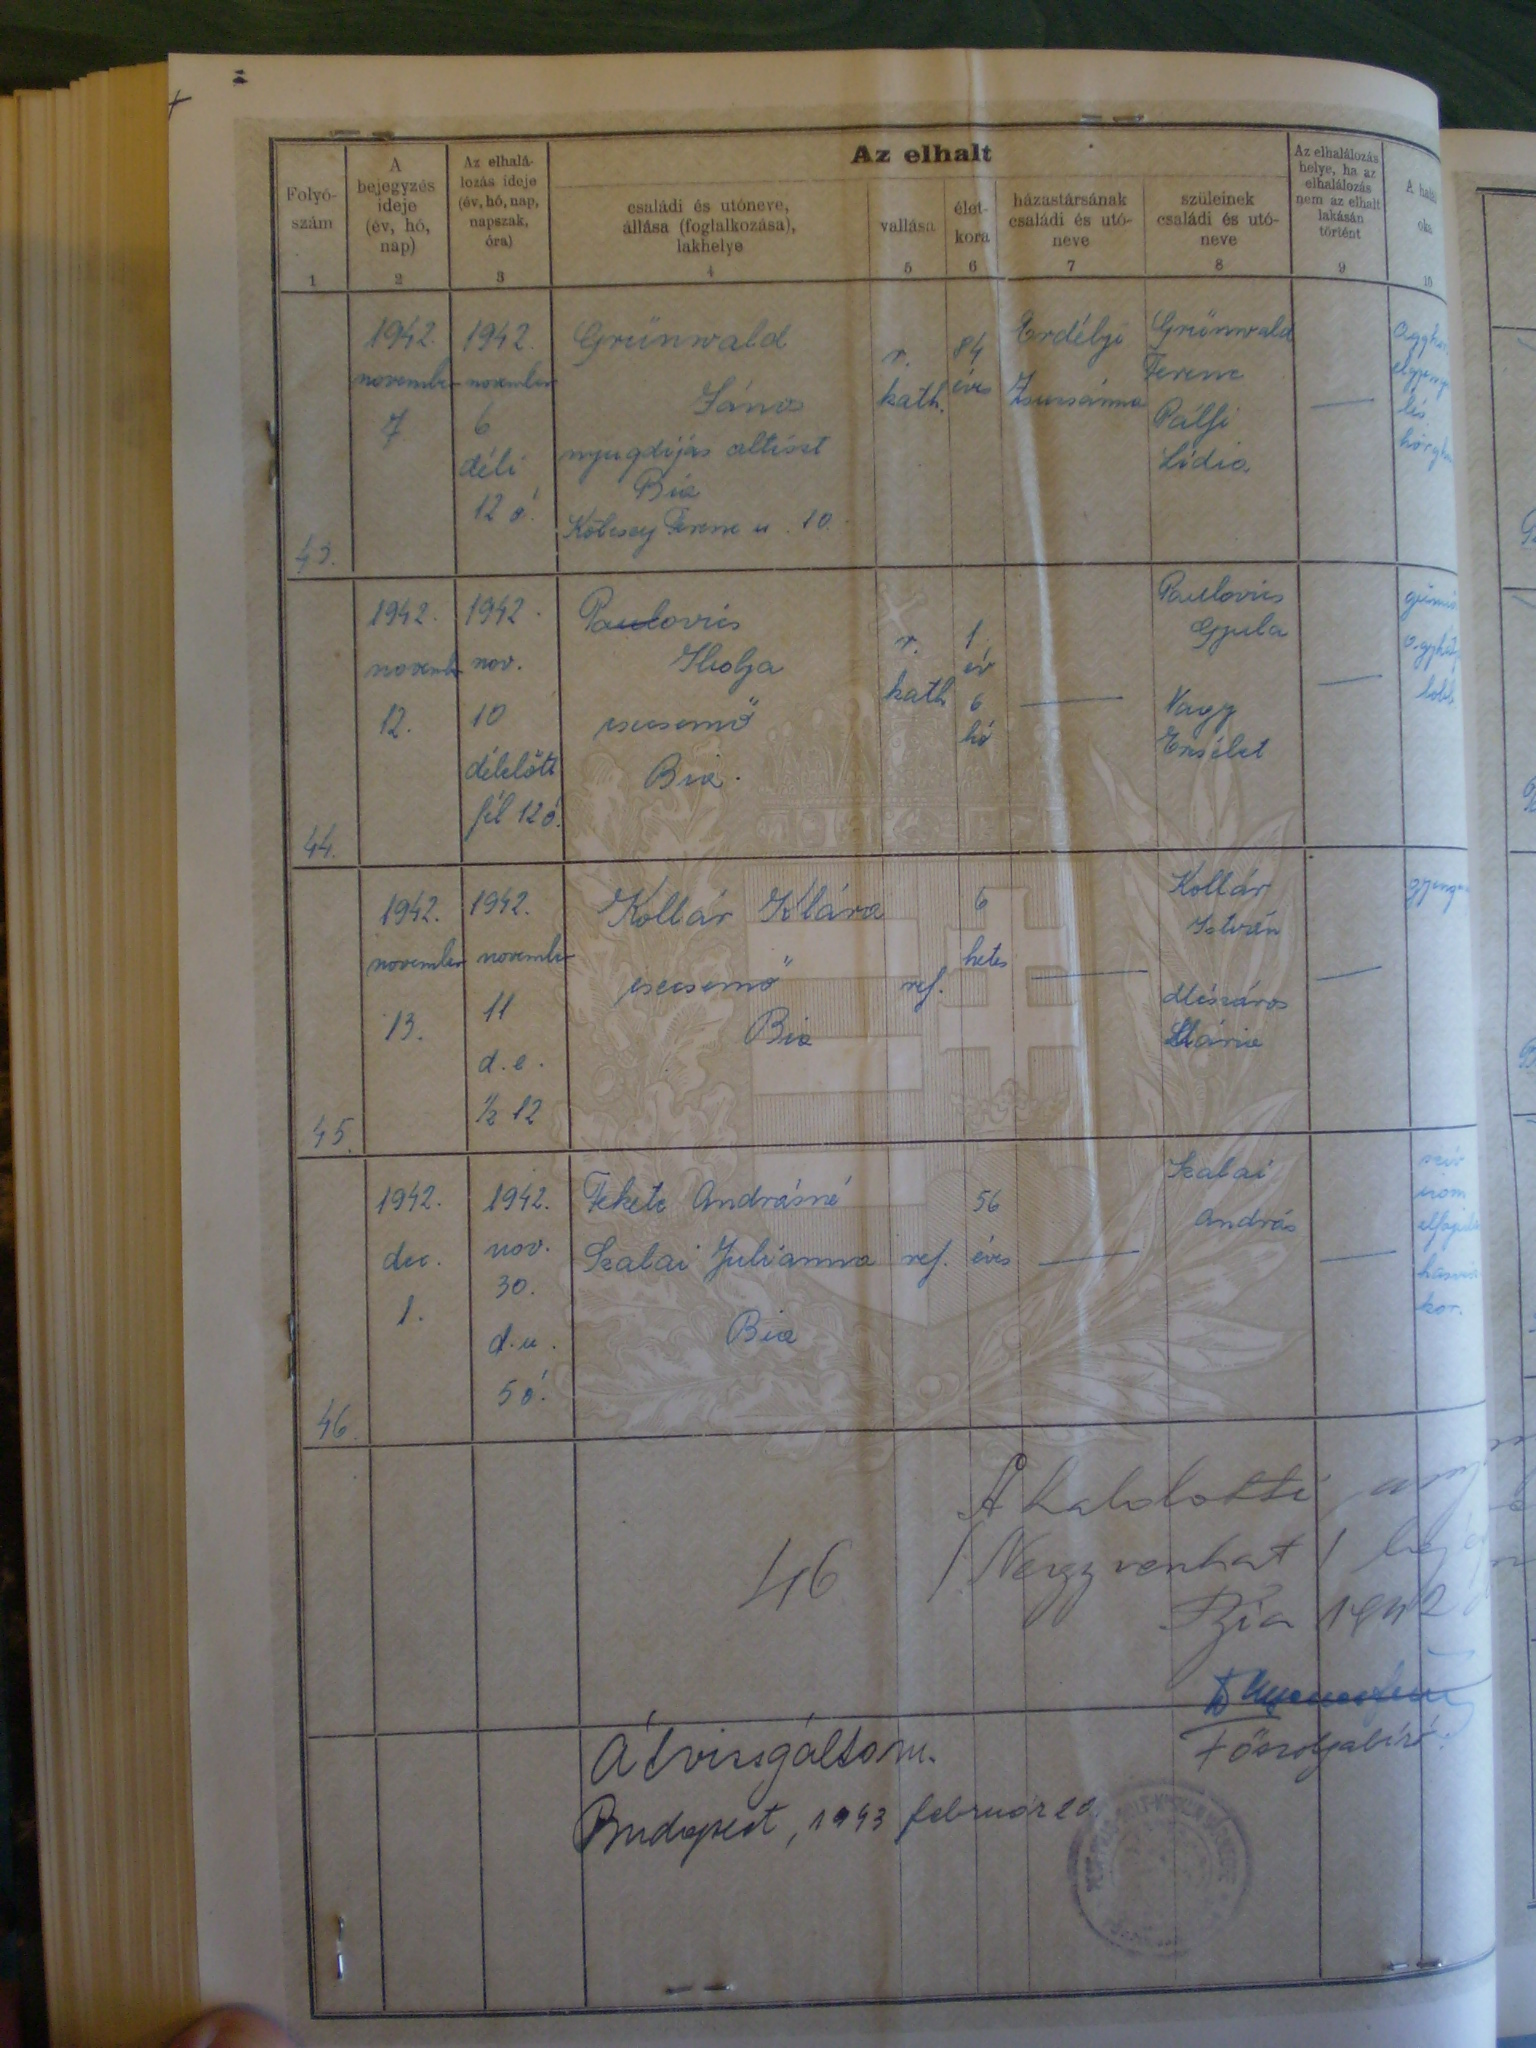 Az elhalt
Folyó-
szám
A
bejegyzés
ideje
(év, hó,
nap)
Az elhalá-
lozás ideje
(év, hó, nap,
napszak,
óra)
családi és utóneve,
állása (foglalkozása),
lakhelye
vallása
élet-
kora
házastársának
családi és utó-
neve
szüleinek
családi és utó-
neve
Az elhalálozás
helye, ha az
elhalálozás
nem az elhalt
lakásán
történt
A halál
oka
1
2
3
4
5
6
7
8
9
10
43.
1942.
november
7
1942.
november
6
déli
12 ó.
Grünwald
János
nyugdíjas altiszt
Bia
Kölcsey Ferenc u. 10.
r.
kath.
84
éves
Erdélyi
Zsuzsánna
Grünwald
Ferenc
Pálfi
Lidia
44.
1942.
november
12.
1942.
nov.
10
délelőtt
fél 12 ó.
Paulovics
Ibolya
csecsemő
Bia.
r.
kath
1
év
6
hó
Paulovics
Gyula
Nagy
Erzsébet
45.
1942.
november
13.
1942.
november
11
d.e.
½ 12
Kollár Klára
csecsemő
Bia
ref.
6
hetes
Kollár
István
Mészáros
Mária
46.
1942.
dec.
1.
1942.
nov.
30.
d.u.
5 ó.
Fekete Andrásné
Szalai Juliánna
Bia
ref.
56
éves
Szalai
András
szív
izom
kor.
A halolotti
46 / Negyvenhat /
Bia 1942
Főszolgabíró.
Átvizsgáltam.
Budapest, 1943 február 20.